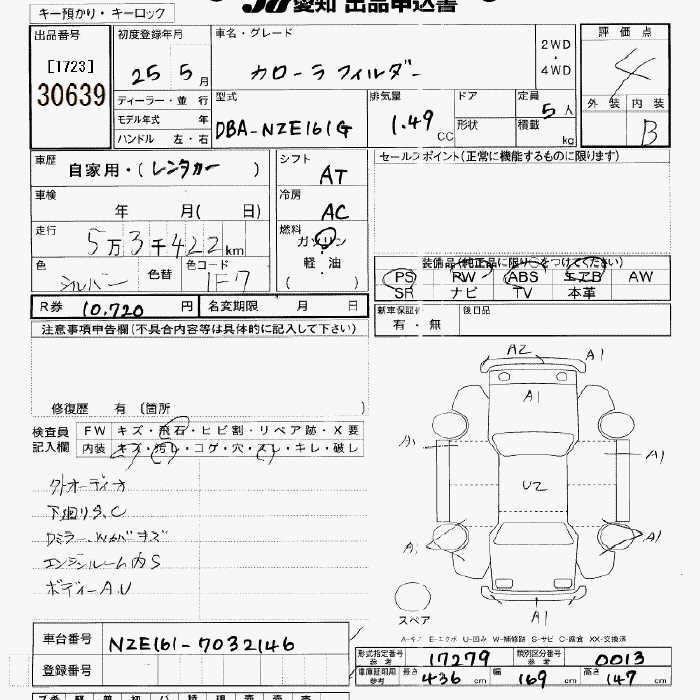 JU愛知 出品申込書
キー預かり・キーロック
出品番号
[1723]
30639
初度登録年月
25 5 月
ディーラー・並 行
モデル年式 年
ハンドル 左・右
車名・グレード
カローラフィルダー
2WD
・
4WD
型式
DBA-NZE161G
排気量
1.49 CC
ドア
形状
定員
5人
積載
kg
評価点
4
外装 内装
B
車歴
自家用・(レンタカー)
車検
年 月( 日)
走行
5万3千422km
色
シルバー
色替
色コード
1F7
シフト
AT
冷房
AC
燃料
ガソリン
軽・油
( )
セールスポイント(正常に機能するものに限ります)
装備品(純正品に限り○をつけてください)
PS RW ABS エアB AW
SR ナビ TV 本革
新車保証書
有・無
後日品
R券 10,720 円
名変期限 月 日
注意事項申告欄(不具合内容等は具体的に記入して下さい)
修復歴 有 (箇所 )
検査員
記入欄
FW キズ・飛石・ヒビ割・リペア跡・X要
内装 キズ・汚レ・コゲ・穴・スレ・キレ・破レ
外オーディオ
下廻りS、C
Dミラー、Wカバキズ
エンジンルーム内S
ボディーA、U
A2 A1
A1
A1 A1
U2
A1 A1
A1
スペア
A-キズ E-エクボ U-凹み W-補修跡 S-サビ C-腐食 XX-交換済
車台番号
NZE161-7032146
登録番号
形式指定番号
参考
17279
類別区分番号
参考
0013
車庫証明用
参考
長さ
436 cm
幅
169 cm
高さ
147 cm